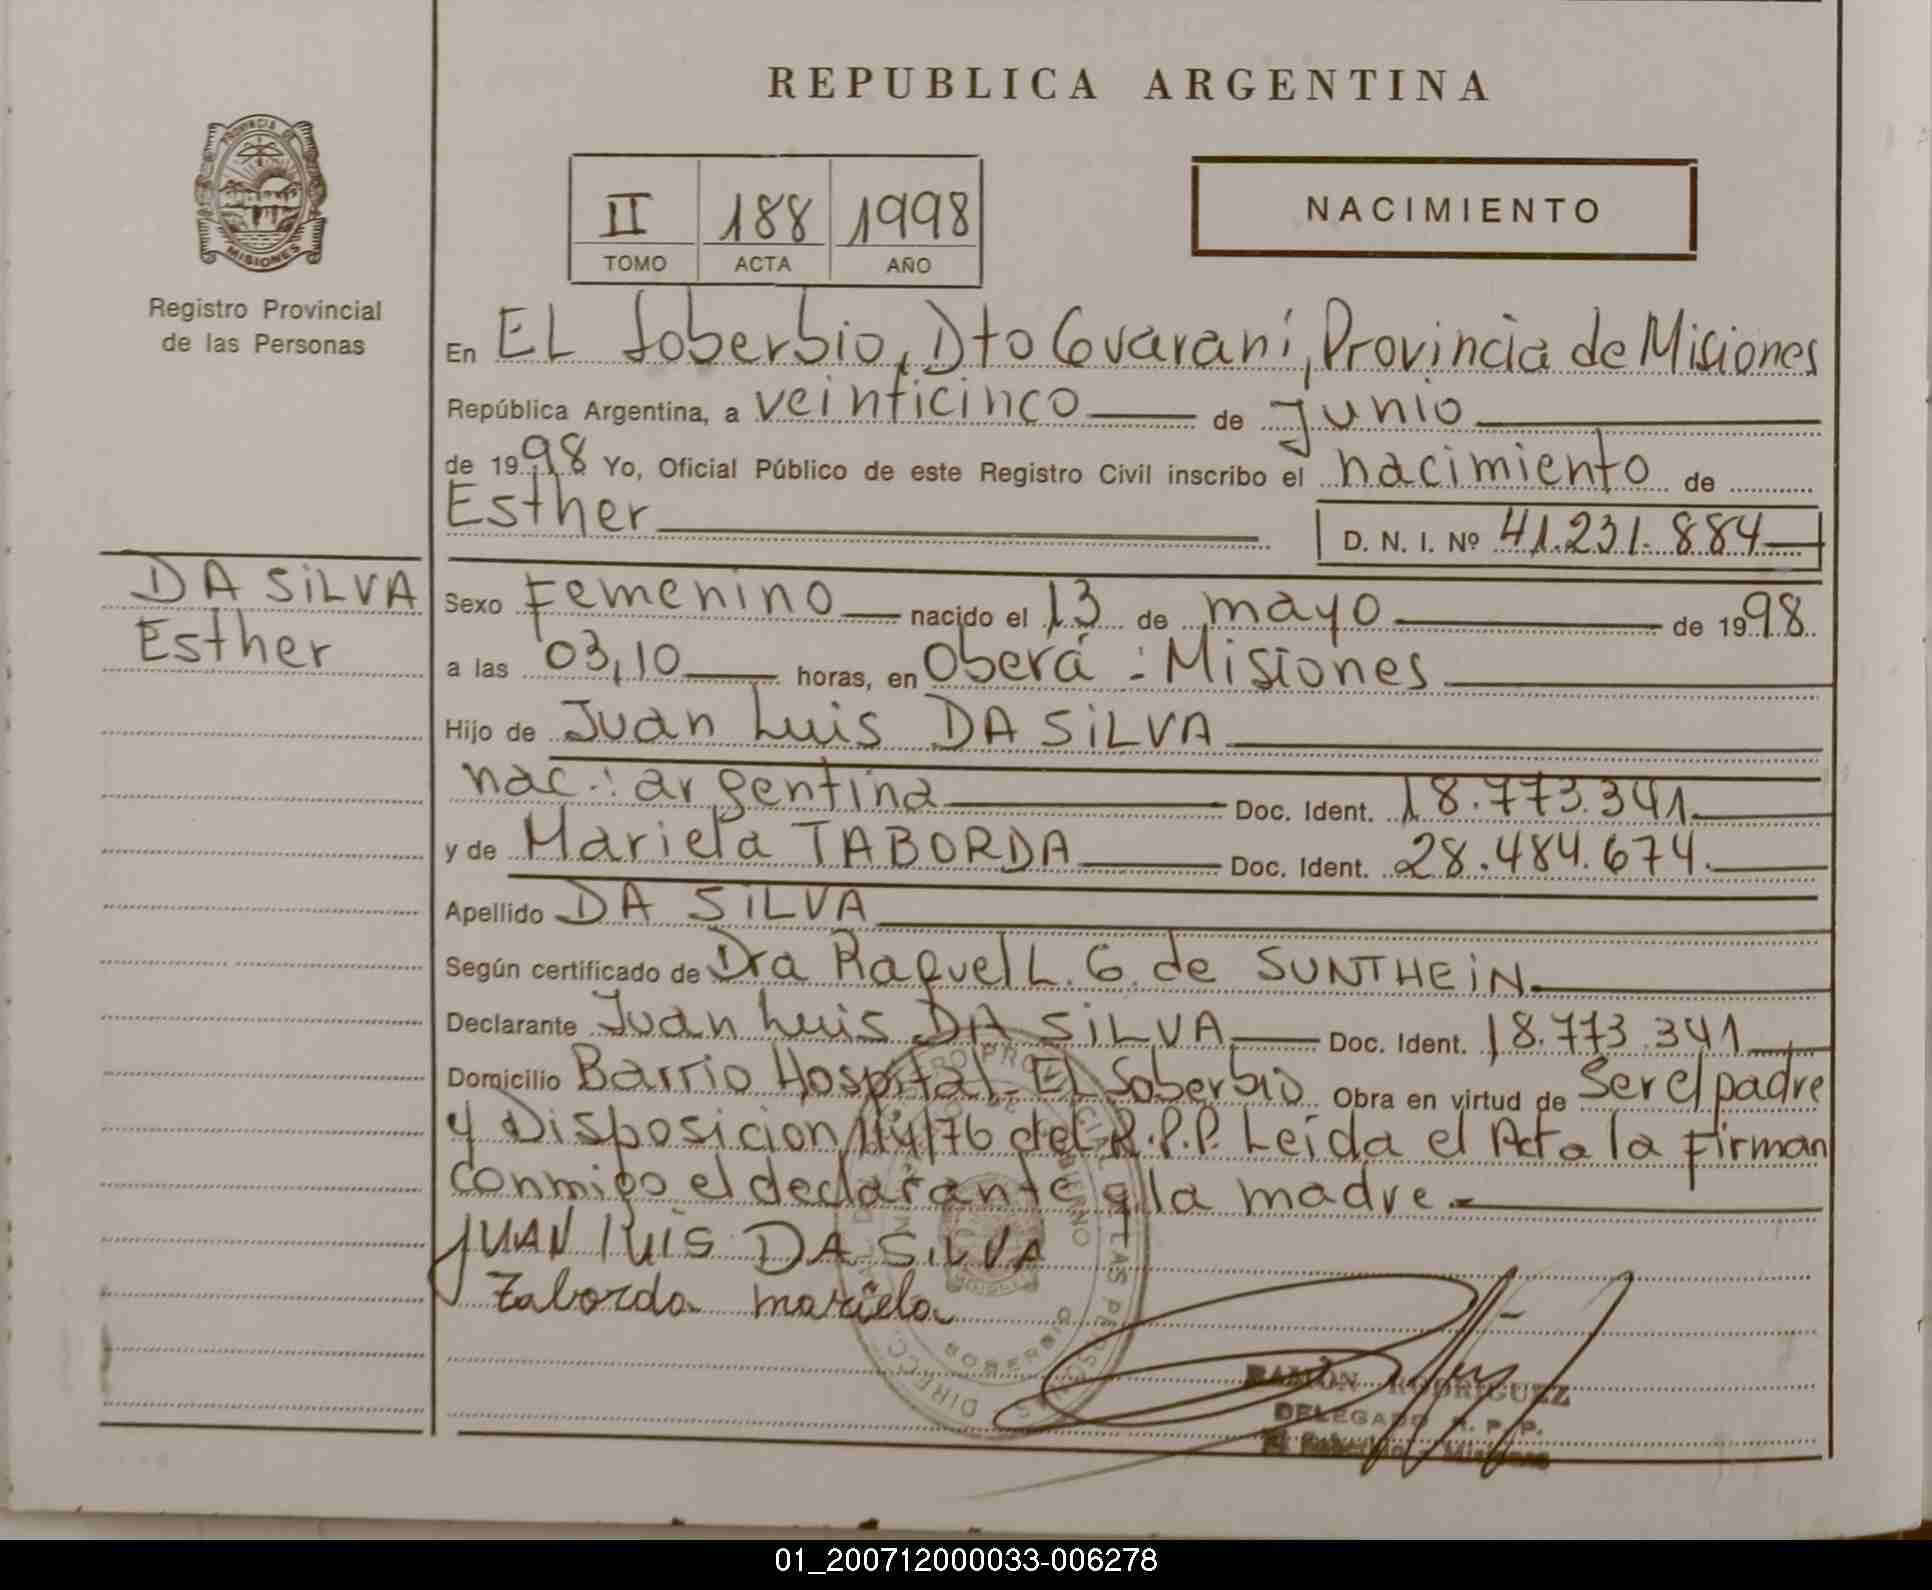 REPUBLICA ARGENTINA
PROVINCIA DE
MISIONES
Registro Provincial
de las Personas
II 188 1998
TOMO ACTA AÑO
NACIMIENTO
En EL Soberbio, Dto Guaraní, Provincia de Misiones
República Argentina, a veinticinco de junio
de 1998 Yo, Oficial Público de este Registro Civil inscribo el nacimiento de
Esther
D. N. I. Nº 41.231.884
DA SiLVA
Esther
Sexo Femenino nacido el 13 de mayo de 1998
a las 03,10 horas, en Oberá - Misiones
Hijo de Juan Luis DA SiLVA
nac.: argentina Doc. Ident. 18.773.341
y de Mariela TABORDA Doc. Ident. 28.484.674.
Apellido DA SiLVA
Según certificado de Dra Raquel L. G. de SUNTHEiN
Declarante Juan Luis DA SiLVA Doc. Ident. 18.773.341
Domicilio Barrio Hospital - EL Soberbio Obra en virtud de Ser el padre
y Disposicion 114/76 del R.P.P. Leida el Acta la Firman
conmigo el declarante y la madre.-
JUAN LUiS DA SiLVA
Taborda mariela
SOBERBIO
RAMÓN RODRIGUEZ
DELEGADO R. P. P.
El Soberbio - Misiones
01_200712000033-006278